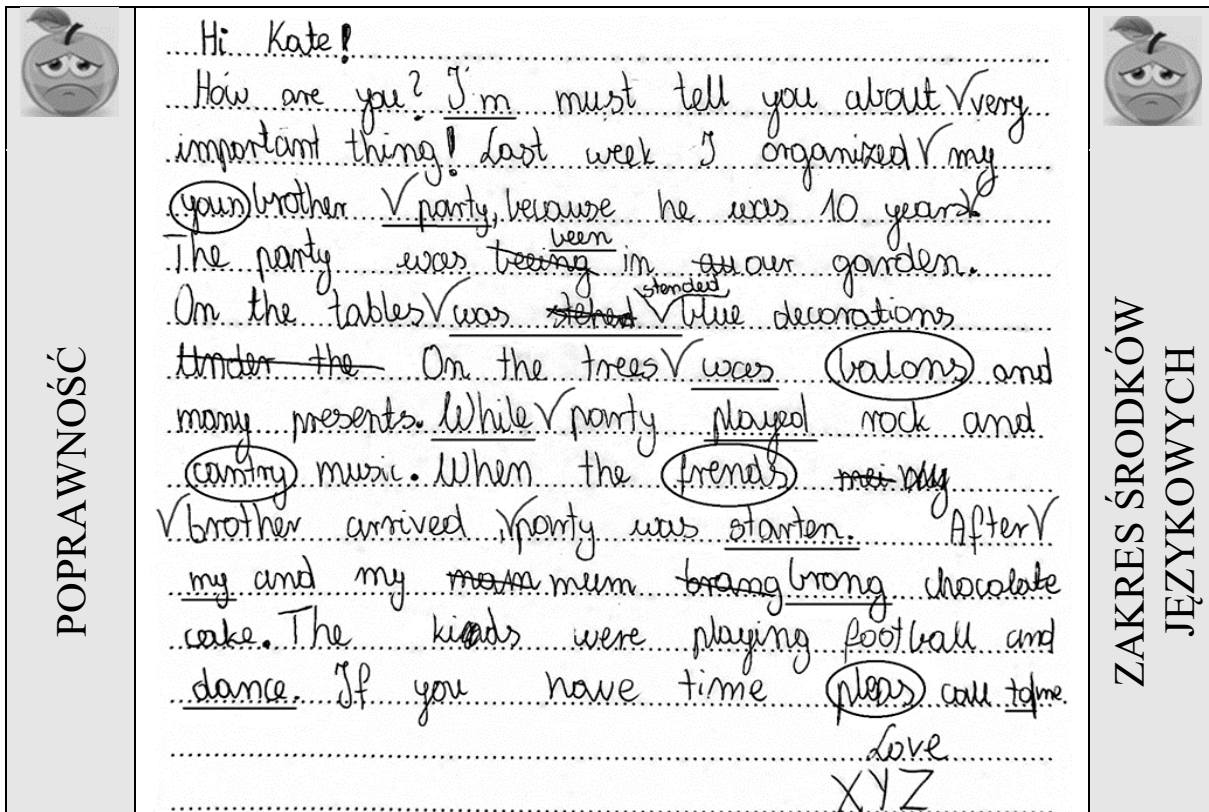 POPRAWNOŚĆ
Hi Kate!
How are you? I'm must tell you about √ very
important thing! Last week I organized √ my
youn brother √ party, because he was 10 years √
The party was beeing been in our garden.
On the tables √ was stended √ blue decorations
Under the On the trees √ was balons and
many presents. While √ party played rock and
cantry music. When the frends my
√ brother arrived, √ party was starten. After √
my and my mam mum brang brong chocolate
cake. The kids were playing football and
dance. If you have time pleas call to me.
Love
XYZ
ZAKRES ŚRODKÓW
JĘZYKOWYCH